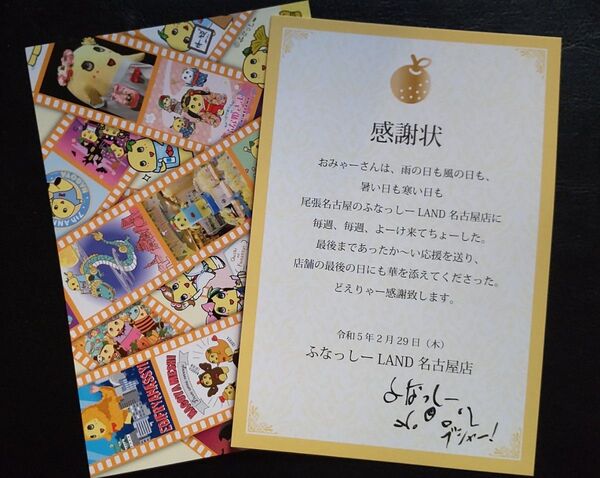 感謝状
おみゃーさんは、雨の日も風の日も、
暑い日も寒い日も
尾張名古屋のふなっしーLAND 名古屋店に
毎週、毎週、よーけ来てちょーした。
最後まであったか〜い応援を送り、
店舗の最後の日にも華を添えてくださった。
どえりゃー感謝致します。
令和5年2月29日（木）
ふなっしーLAND 名古屋店
ふなっしー
ブシャー!
NAGOYA
7TH ANNI
NAGOYA MUSEUM